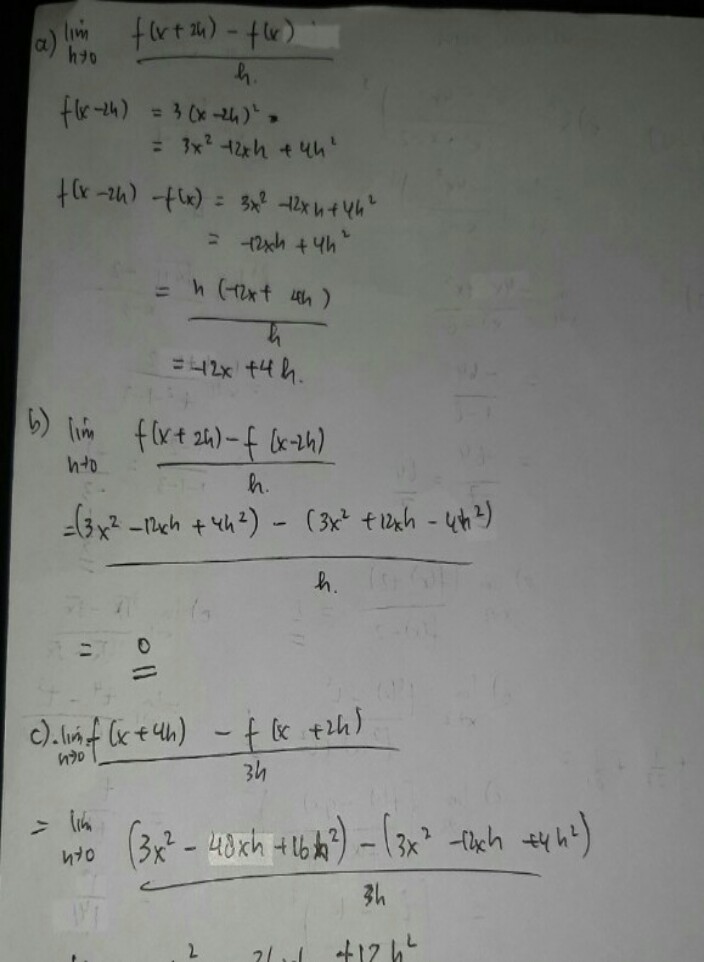 a) lim h→0 f(x+2h) - f(x)
h.
f(x-2h) = 3(x-2h)².
= 3x² -12xh + 4h²
f(x-2h) - f(x) = 3x² -12xh + 4h²
= -12xh + 4h²
= h (-12x + 4h)
h
= -12x + 4h.
b) lim h→0 f(x+2h) - f(x-2h)
h.
= (3x² - 12xh + 4h²) - (3x² + 12xh - 4h²)
h.
= 0
c). lim h→0 f(x+4h) - f(x+2h)
3h
= lim h→0 (3x² - 48xh + 16h²) - (3x² - 12xh + 4h²)
3h
+12h²